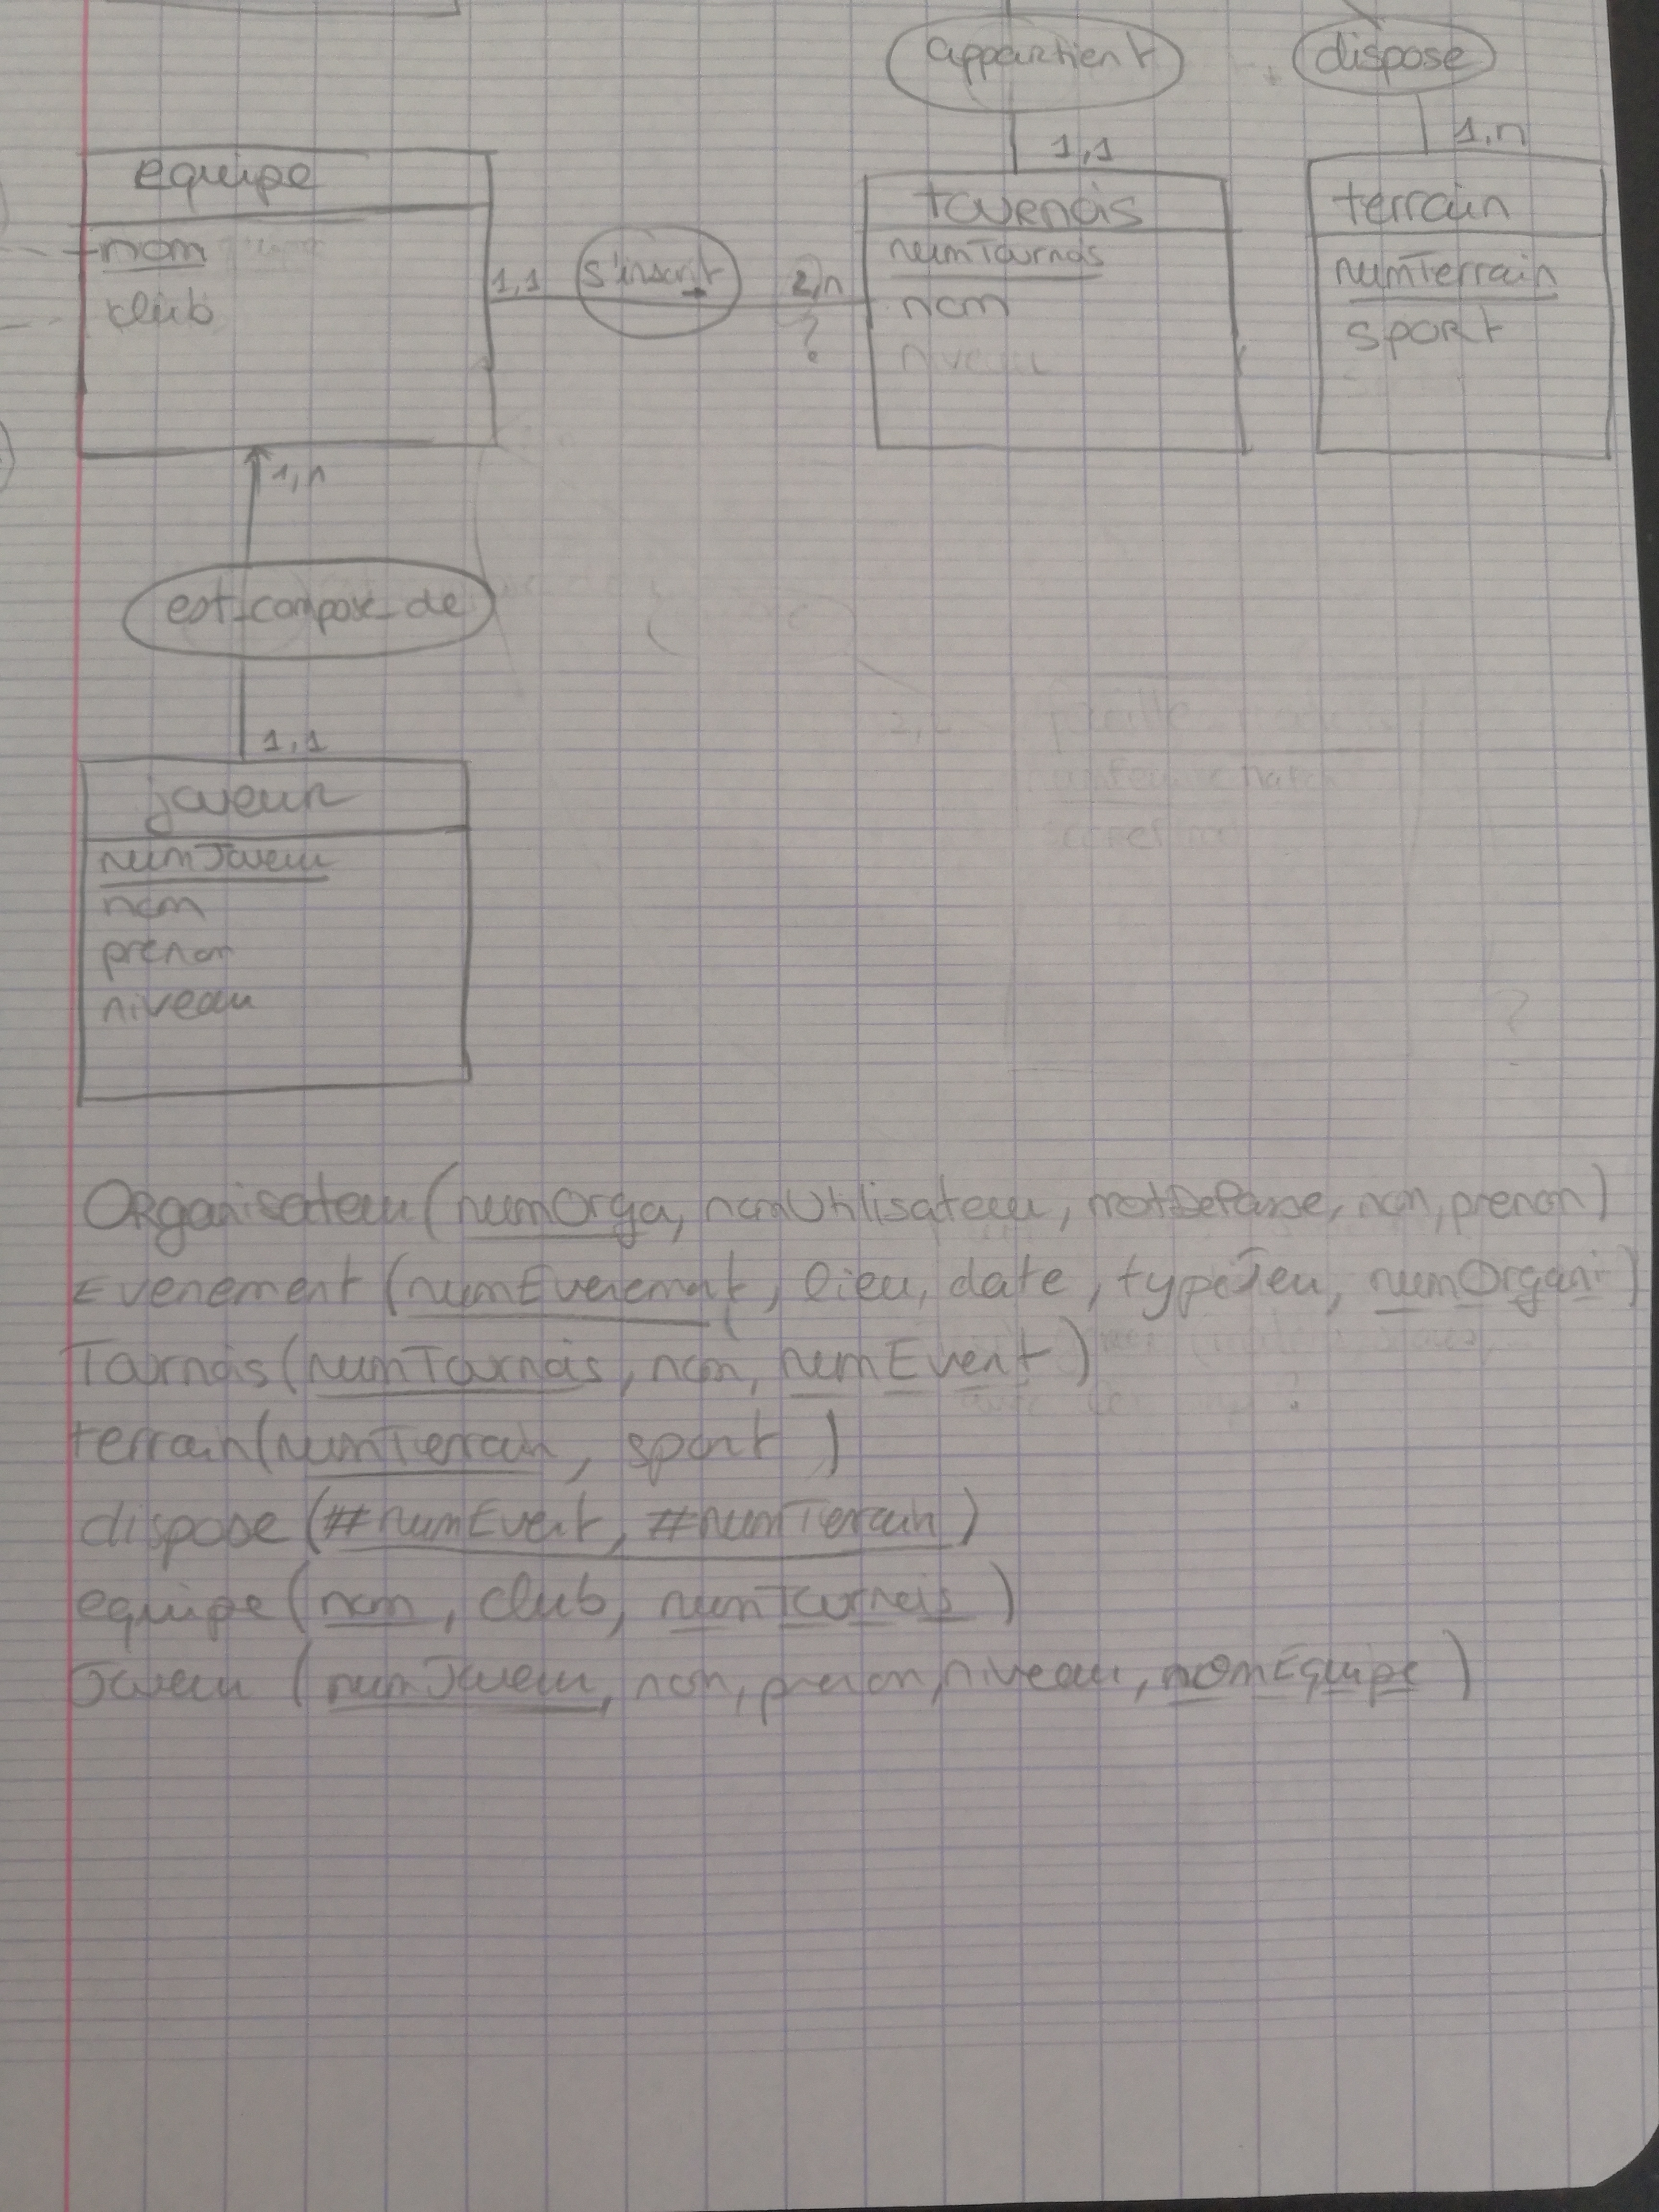 appartient
dispose
1,1
1,n
equipe
nom
club
1,1
s'inscrit
2,n
?
tournois
numTournois
nom
niveau
terrain
numTerrain
sport
1,n
est_compose_de
1,1
joueur
numJoueur
nom
prenom
niveau
Organisateur (numOrga, nomUtilisateur, motDePasse, nom, prenom)
Evenement (numEvenement, lieu, date, typeJeu, numOrgani)
Tournois (numTournois, nom, numEvent)
terrain (numTerrain, sport )
dispose (#numEvent, #numTerrain)
equipe (nom, club, numTournois )
Joueur (numJoueur, nom, prenom, niveau, nomEquipe )